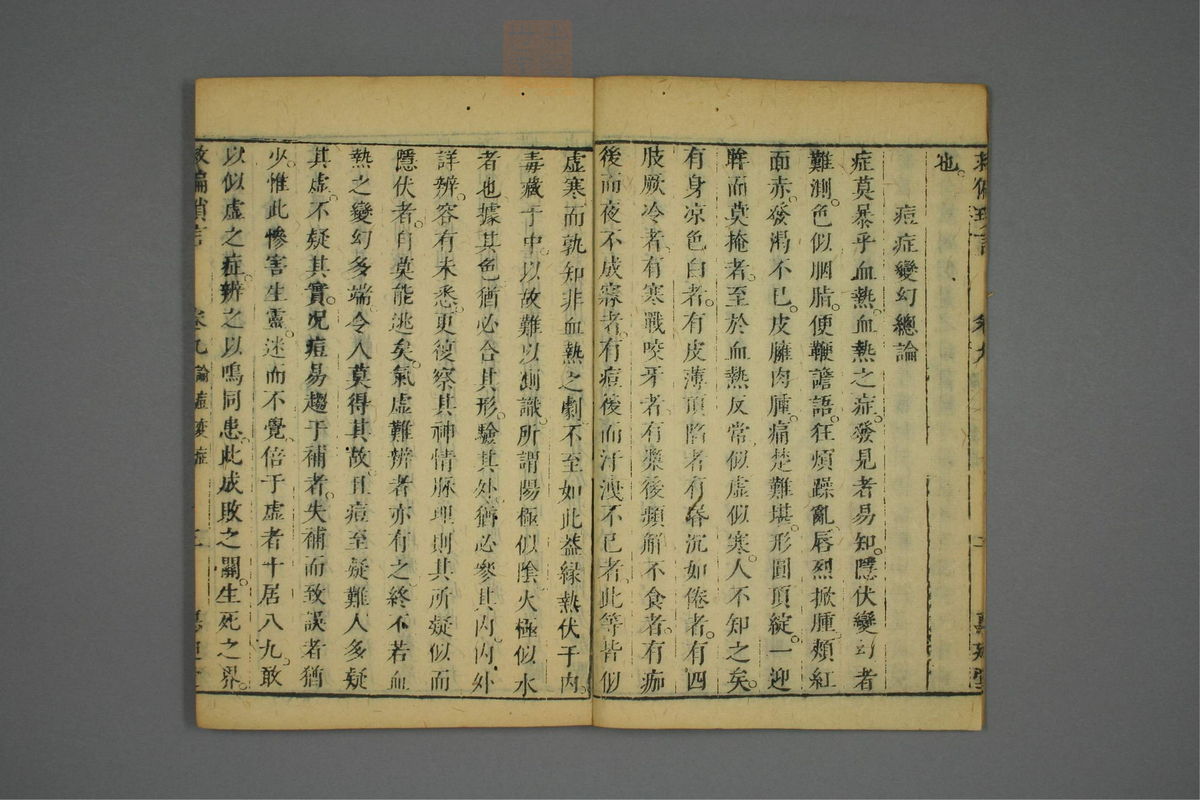 救偏瑣言 卷九 二 惠迪堂
也。
痘症變幻總論
症莫暴乎血熱。血熱之症。發見者易知。隱伏變幻者
難測。色似胭脂。便鞕譫語。狂煩躁亂。唇烈掀腫。頰紅
面赤。發渴不已。皮臃肉腫。痛楚難堪。形圓頂綻。一迎
眸而莫掩者。至於血熱反常。似虛似寒。人不知之矣。
有身凉色白者。有皮薄頂陷者。有昏沉如倦者。有四
肢厥冷者。有寒戰咬牙者。有漿後頻解不食者。有痂
後而夜不成寐者。有痘後而汗洩不已者。此等皆似
虛寒而孰知非血熱之劇。不至如此。益緣熱伏于內。
毒藏于中。以故難以測識。所謂陽極似陰。火極似水
者也。據其色猶必合其形。驗其外。猶必參其內。內外
詳辨。容有未悉。更復察其神情脈理。則其所疑似而
隱伏者。自莫能逃矣。氣虛難辨者亦有之。終不若血
熱之變幻多端。令人莫得其故。且痘至疑難。人多疑
其虛。不疑其實。况痘易趨于補者。失補而致誤者猶
少。惟此慘害生靈。迷而不覺。倍于虛者十居八九。敢
以似虛之症。辨之以鳴同患。此成敗之關。生死之界。
救偏瑣言 卷九論痘變症 三